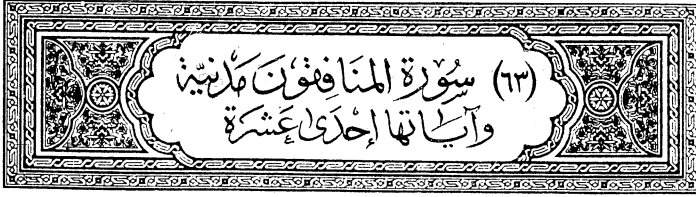 (٦٣) سُورَة المنَافِقونَ مَدَنيَّة
وَآيَاتُها إحْدَىٰ عَشرَة